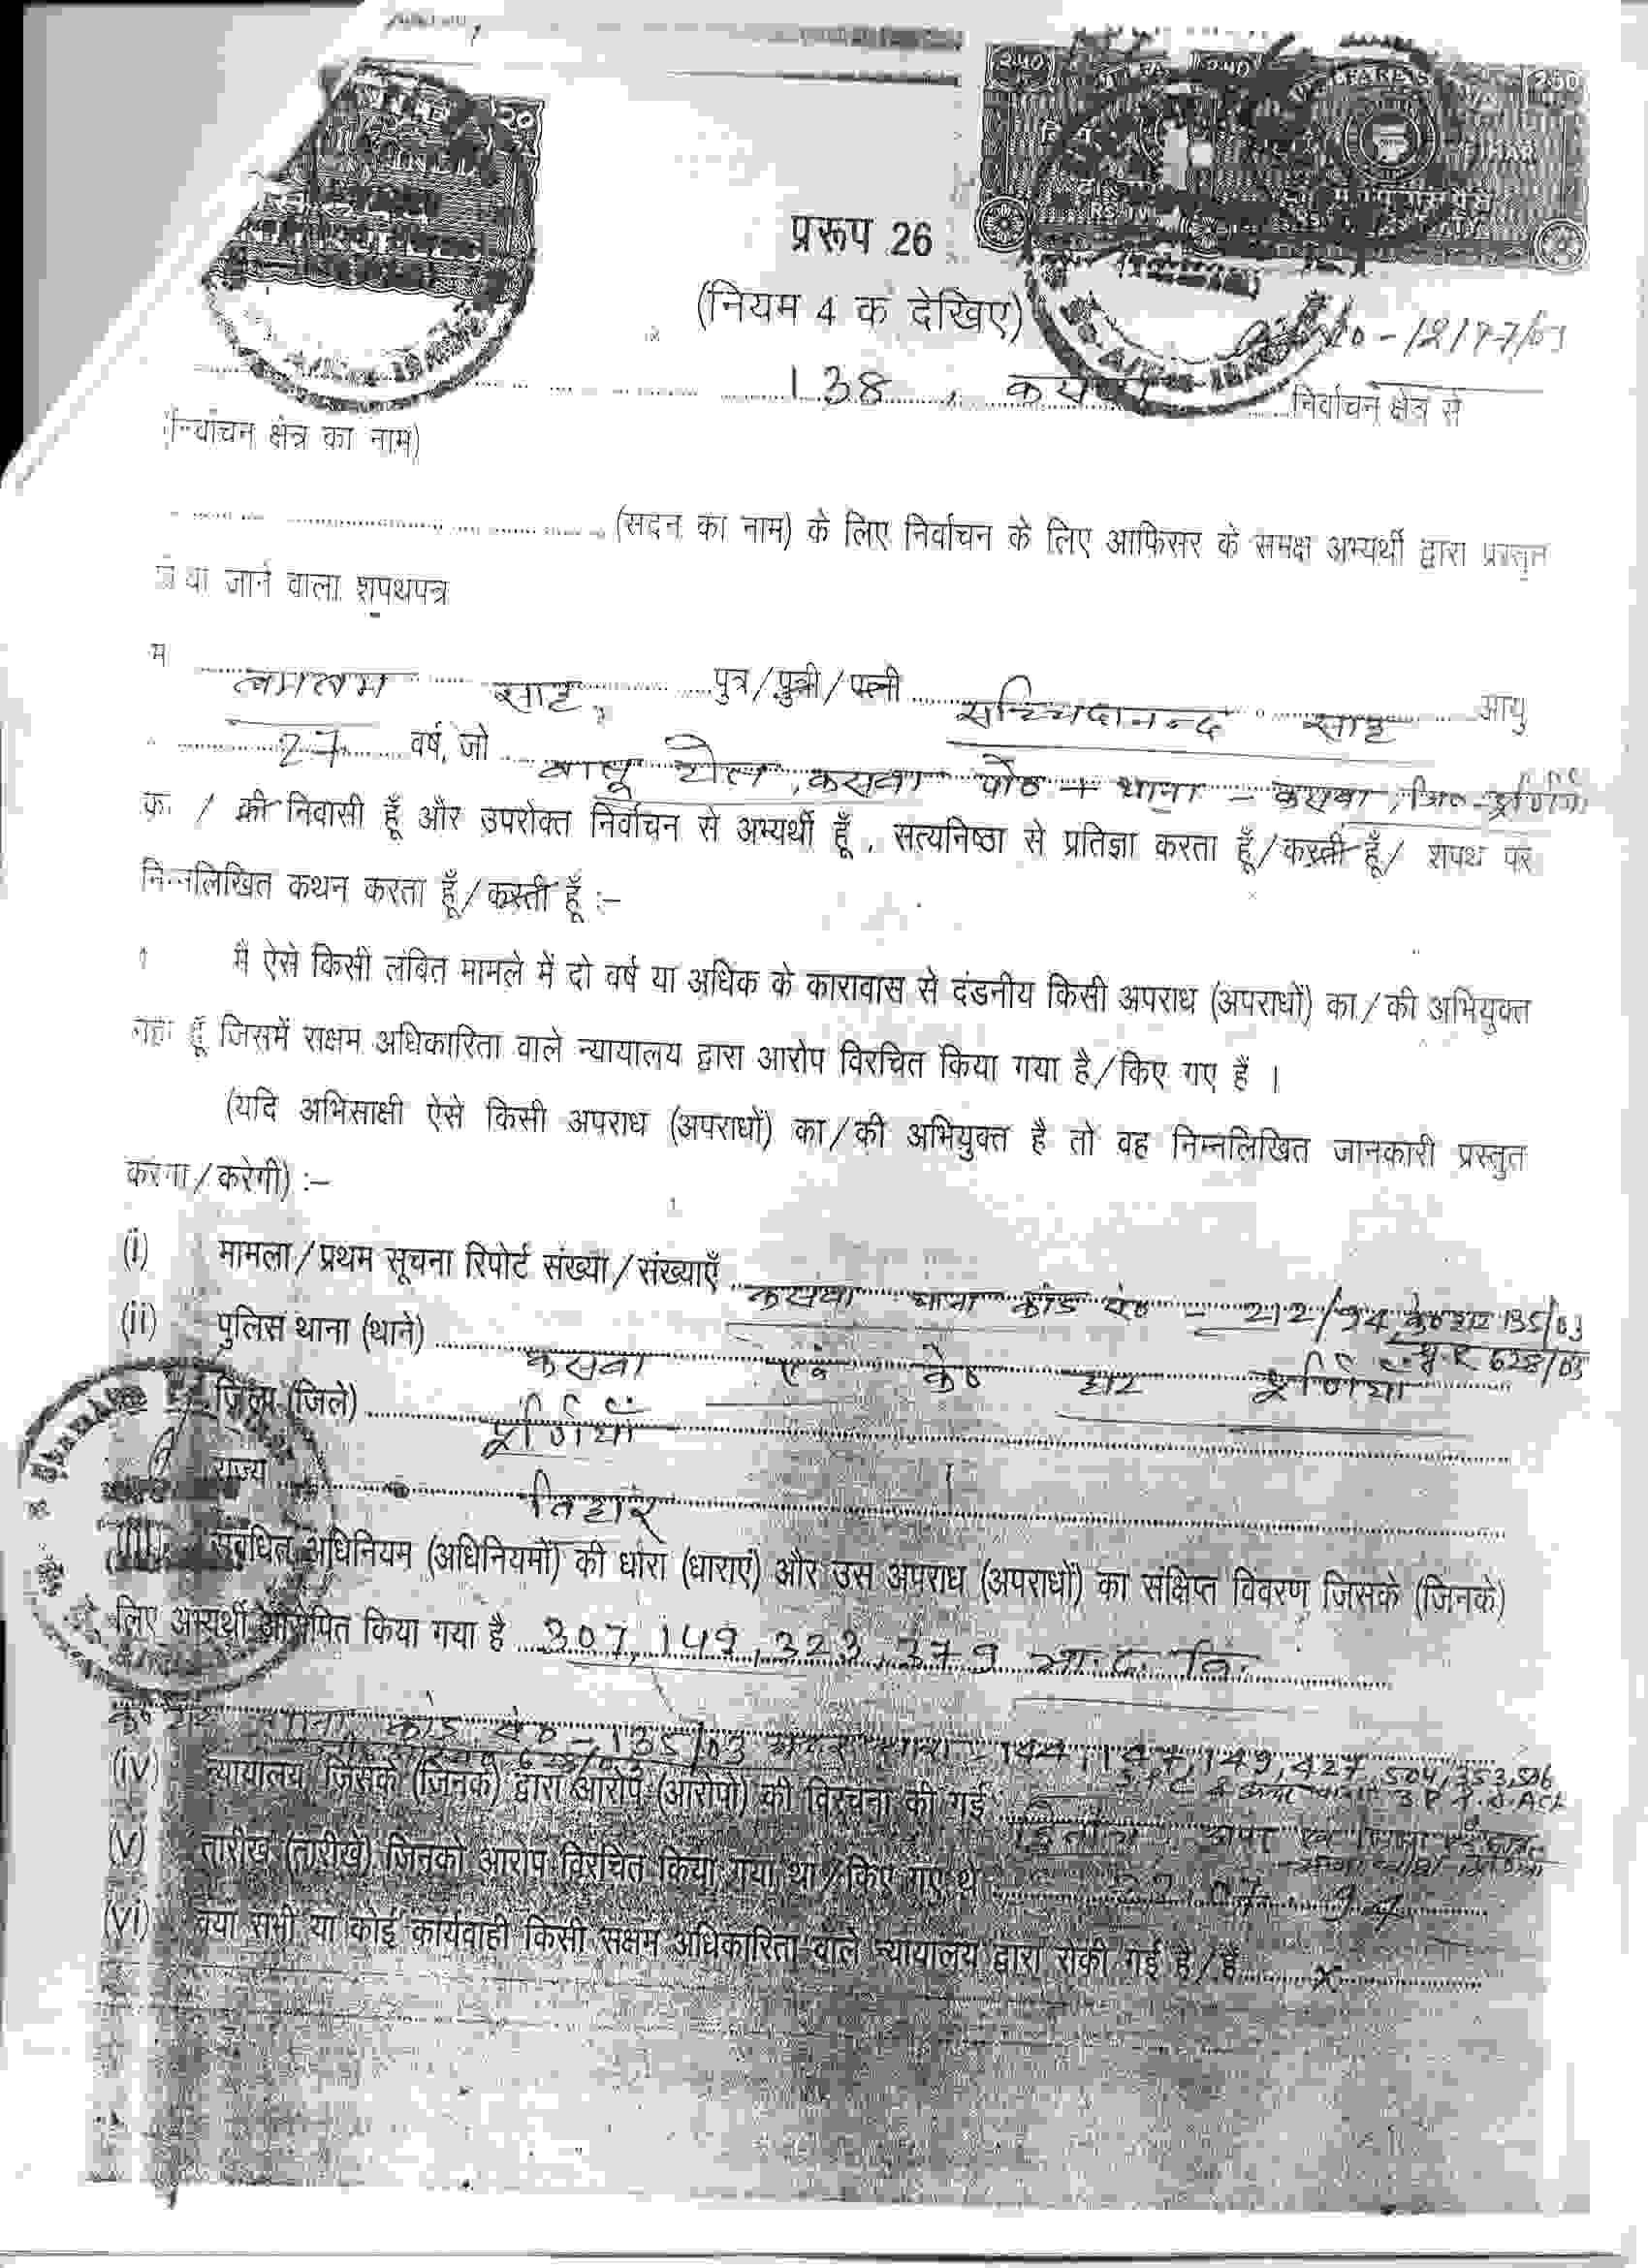 240
240
250
20
BIHAR
प्ररूप 26
(नियम 4 क देखिए)
138, निर्वाचन क्षेत्र से
(निर्वाचन क्षेत्र का नाम)
(सदन का नाम) के लिए निर्वाचन के लिए आफिसर के समक्ष अभ्यर्थी द्वारा प्रस्तुत
जाने वाला शपथपत्र
साह पुत्र/पुत्री/पत्नी सच्चिदानन्द साह आयु
27 वर्ष, जो कसबा पो० + थाना - कसबा, जि०-पूर्णियाँ
का / की निवासी हूँ और उपरोक्त निर्वाचन से अभ्यर्थी हूँ, सत्यनिष्ठा से प्रतिज्ञा करता हूँ/करती हूँ/ शपथ पर
निम्नलिखित कथन करता हूँ/करती हूँ :-
मैं ऐसे किसी लंबित मामले में दो वर्ष या अधिक के कारावास से दंडनीय किसी अपराध (अपराधों) का/की अभियुक्त
नहीं हूँ जिसमें सक्षम अधिकारिता वाले न्यायालय द्वारा आरोप विरचित किया गया है/किए गए हैं ।
(यदि अभिसाक्षी ऐसे किसी अपराध (अपराधों) का/की अभियुक्त है तो वह निम्नलिखित जानकारी प्रस्तुत
करेगा/करेगी) :-
(i) मामला/प्रथम सूचना रिपोर्ट संख्या/संख्याएँ कसबा थाना कांड सं० - 212/94 135/03
628/03
(ii) पुलिस थाना (थाने) कसबा एवं के० हाट पूर्णियाँ
जिला (जिले) पूर्णियाँ
राज्य बिहार
संबंधित अधिनियम (अधिनियमों) की धारा (धाराएं) और उस अपराध (अपराधों) का संक्षिप्त विवरण जिसके (जिनके)
लिए अभ्यर्थी आरोपित किया गया है 307, 149, 323, 379 भा. द. वि.
थाना कांड सं० - 135/03 144, 147, 149, 427 504, 353, 506
(iv) न्यायालय जिसके (जिनके) द्वारा आरोप (आरोपों) की विरचना की गई
(v) तारीख (तारीखें) जिनको आरोप विरचित किया गया था/किए गए थे
(vi) क्या सभी या कोई कार्यवाही किसी सक्षम अधिकारिता वाले न्यायालय द्वारा रोकी गई है/हैं x